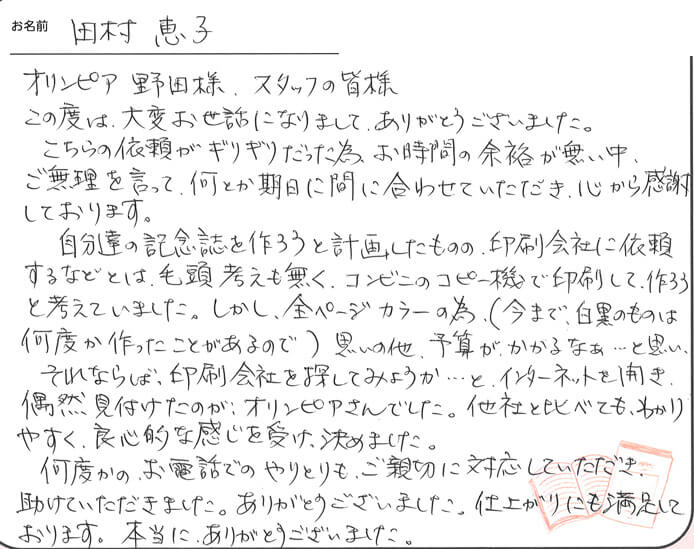 お名前 田村 恵子
オリンピア 野田様、スタッフの皆様
この度は、大変お世話になりまして、ありがとうございました。
こちらの依頼がギリギリだった為、お時間の余裕が無い中、
ご無理を言って、何とか期日に間に合わせていただき、心から感謝
しております。
自分達の記念誌を作ろうと計画したものの、印刷会社に依頼
するなどとは、毛頭考えも無く、コンビニのコピー機で印刷して、作ろう
と考えていました。しかし、全ページカラーの為、(今まで、白黒のものは
何度か作ったことがあるので)思いの他、予算が、かかるなぁ…と思い、
それならば、印刷会社を探してみようか…と、インターネットを開き、
偶然見付けたのが、オリンピアさんでした。他社と比べても、わかり
やすく、良心的な感じを受け、決めました。
何度かの、お電話でのやりとりも、ご親切に対応していただき、
助けていただきました。ありがとうございました。仕上がりにも満足して
おります。本当に、ありがとうございました。